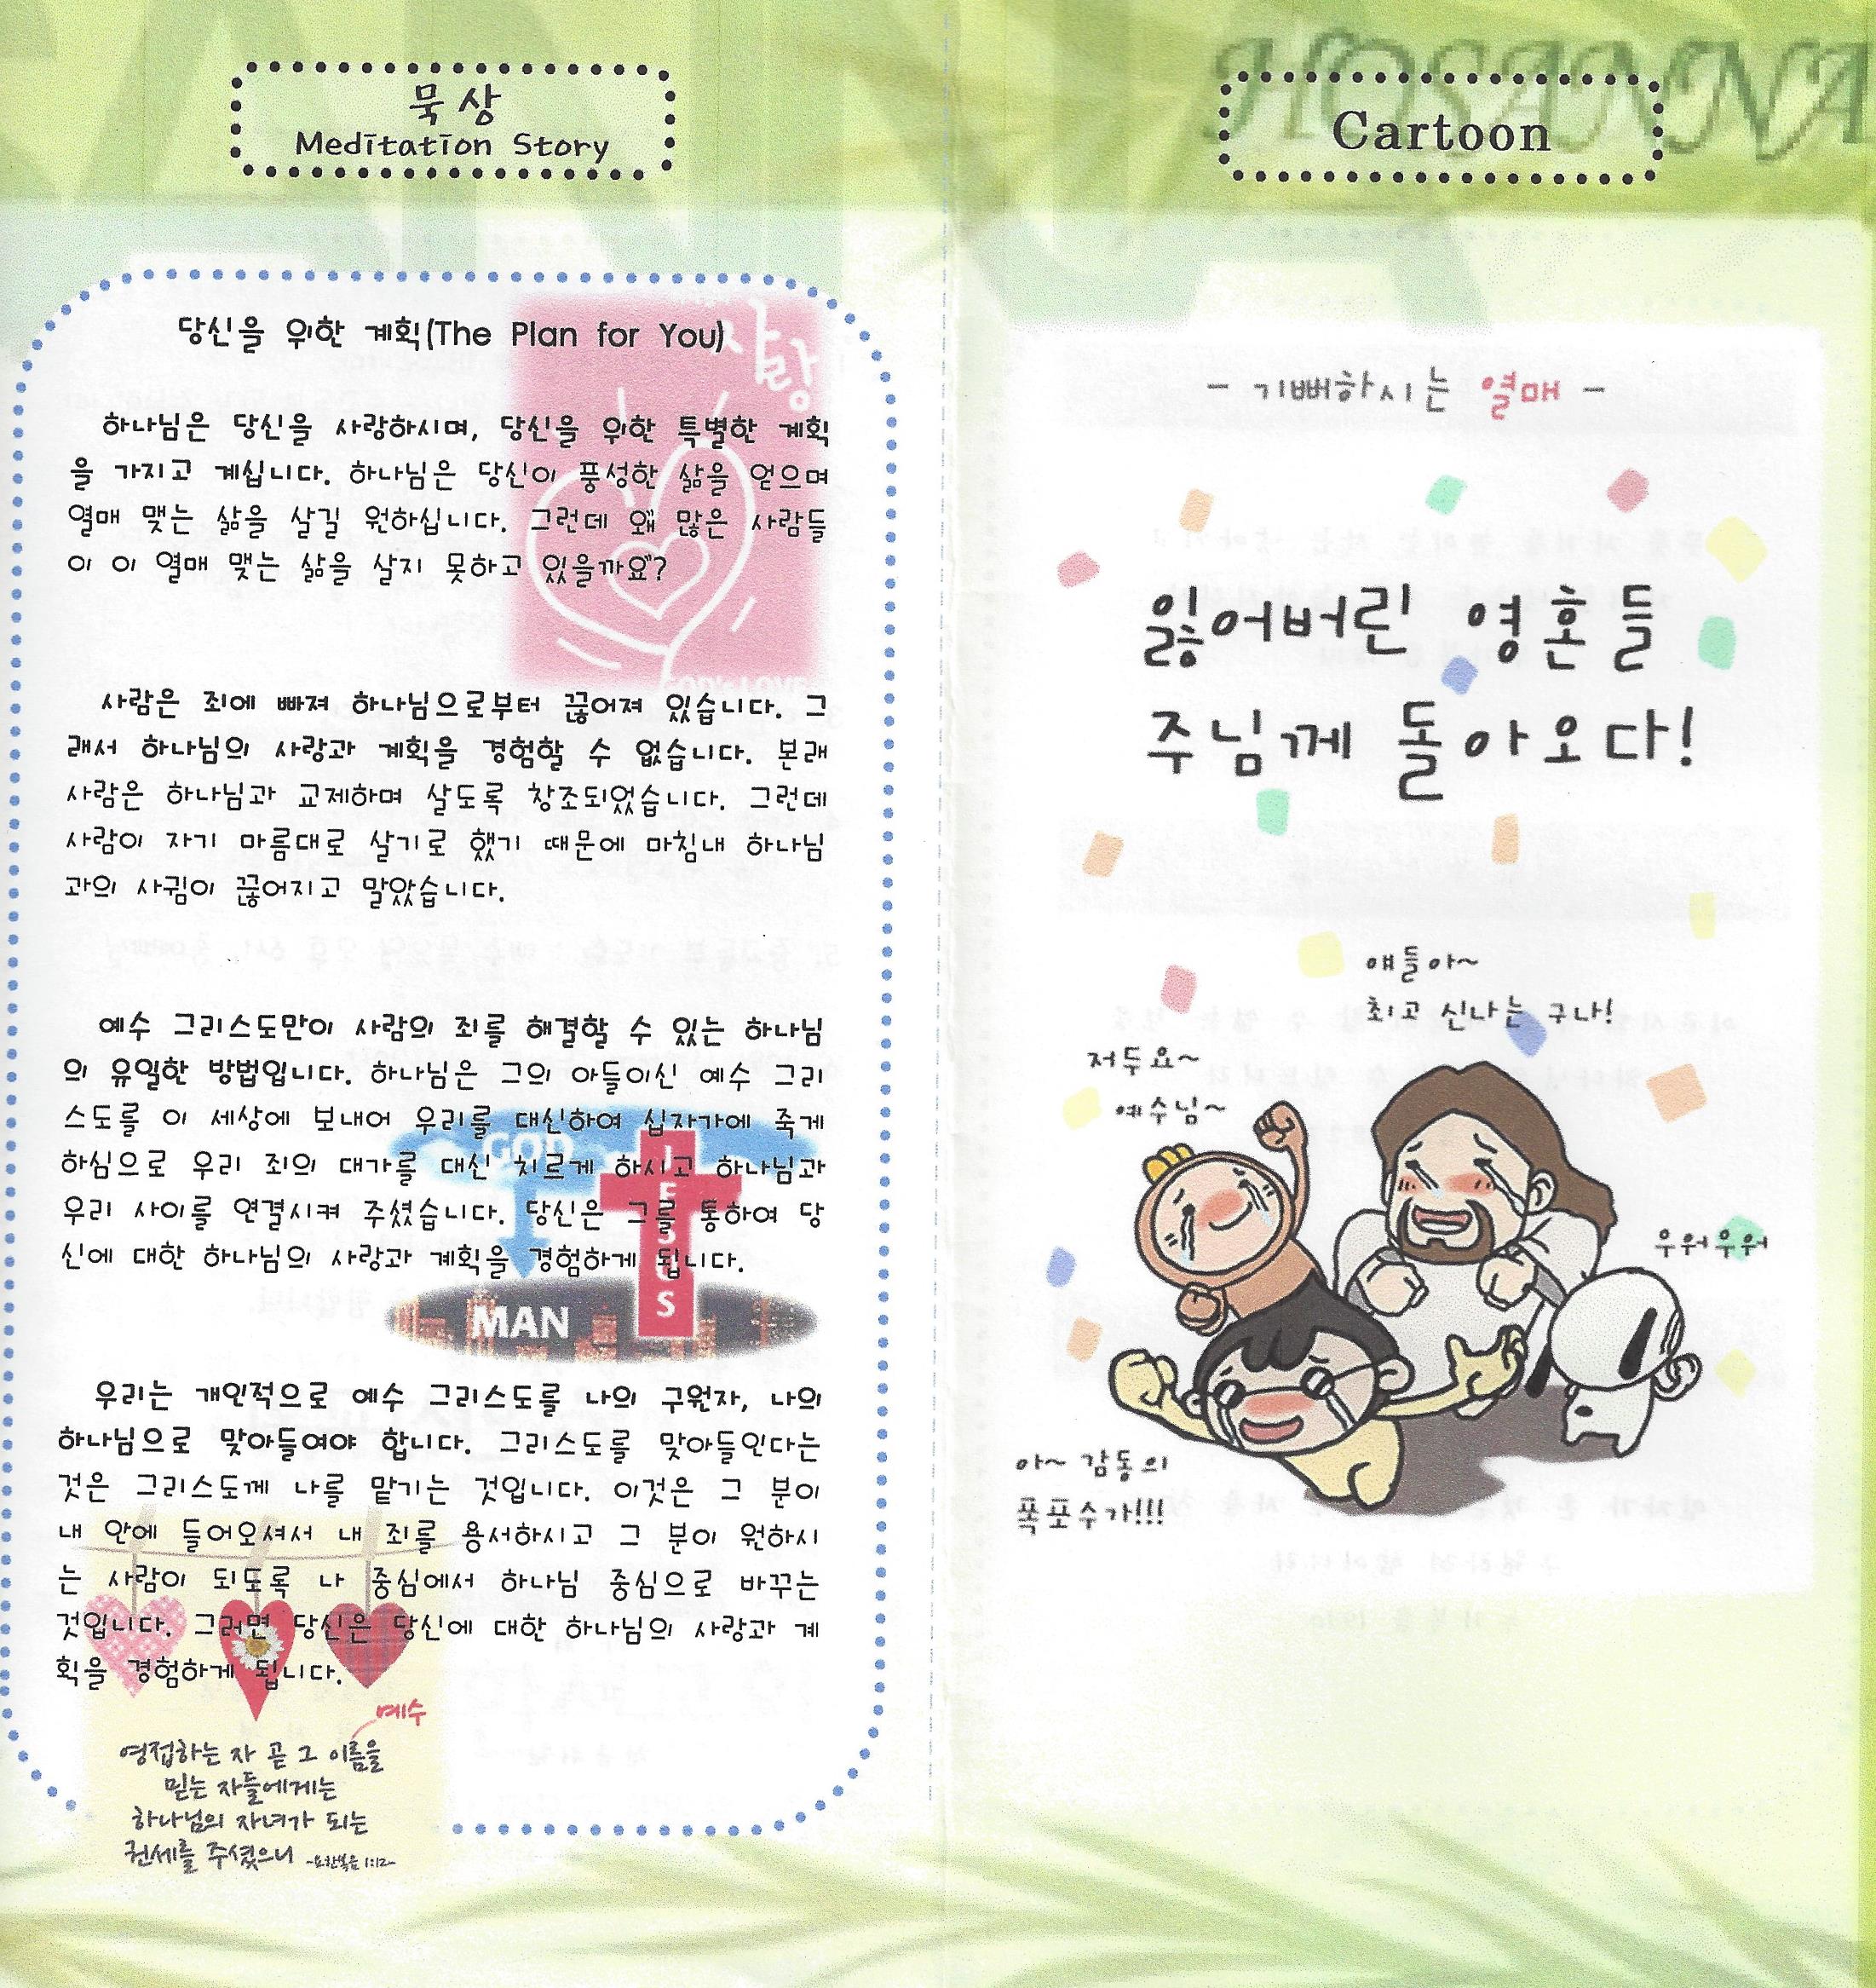 묵상
Meditation Story
당신을 위한 계획(The Plan for You)
사랑
하나님은 당신을 사랑하시며, 당신을 위한 특별한 계획
을 가지고 계십니다. 하나님은 당신이 풍성한 삶을 얻으며
열매 맺는 삶을 살길 원하십니다. 그런데 왜 많은 사람들
이 이 열매 맺는 삶을 살지 못하고 있을까요?
GOD's LOVE
사람은 죄에 빠져 하나님으로부터 끊어져 있습니다. 그
래서 하나님의 사랑과 계획을 경험할 수 없습니다. 본래
사람은 하나님과 교제하며 살도록 창조되었습니다. 그런데
사람이 자기 마름대로 살기로 했기 때문에 마침내 하나님
과의 사귐이 끊어지고 말았습니다.
예수 그리스도만이 사람의 죄를 해결할 수 있는 하나님
의 유일한 방법입니다. 하나님은 그의 아들이신 예수 그리
스도를 이 세상에 보내어 우리를 대신하여 십자가에 죽게
하심으로 우리 죄의 대가를 대신 치르게 하시고 하나님과
우리 사이를 연결시켜 주셨습니다. 당신은 그를 통하여 당
신에 대한 하나님의 사랑과 계획을 경험하게 됩니다.
GOD
JESUS
MAN
우리는 개인적으로 예수 그리스도를 나의 구원자, 나의
하나님으로 맞아들여야 합니다. 그리스도를 맞아들인다는
것은 그리스도께 나를 맡기는 것입니다. 이것은 그 분이
내 안에 들어오셔서 내 죄를 용서하시고 그 분이 원하시
는 사람이 되도록 나 중심에서 하나님 중심으로 바꾸는
것입니다. 그러면 당신은 당신에 대한 하나님의 사랑과 계
획을 경험하게 됩니다.
예수
영접하는 자 곧 그 이름을
믿는 자들에게는
하나님의 자녀가 되는
권세를 주셨으니 -요한복음 1:12-
HOSANNA
Cartoon
- 기뻐하시는 열매 -
잃어버린 영혼들
주님께 돌아오다!
얘들아~
최고 신나는 구나!
저두요~
예수님~
우워우워
아~ 감동의
폭포수가!!!